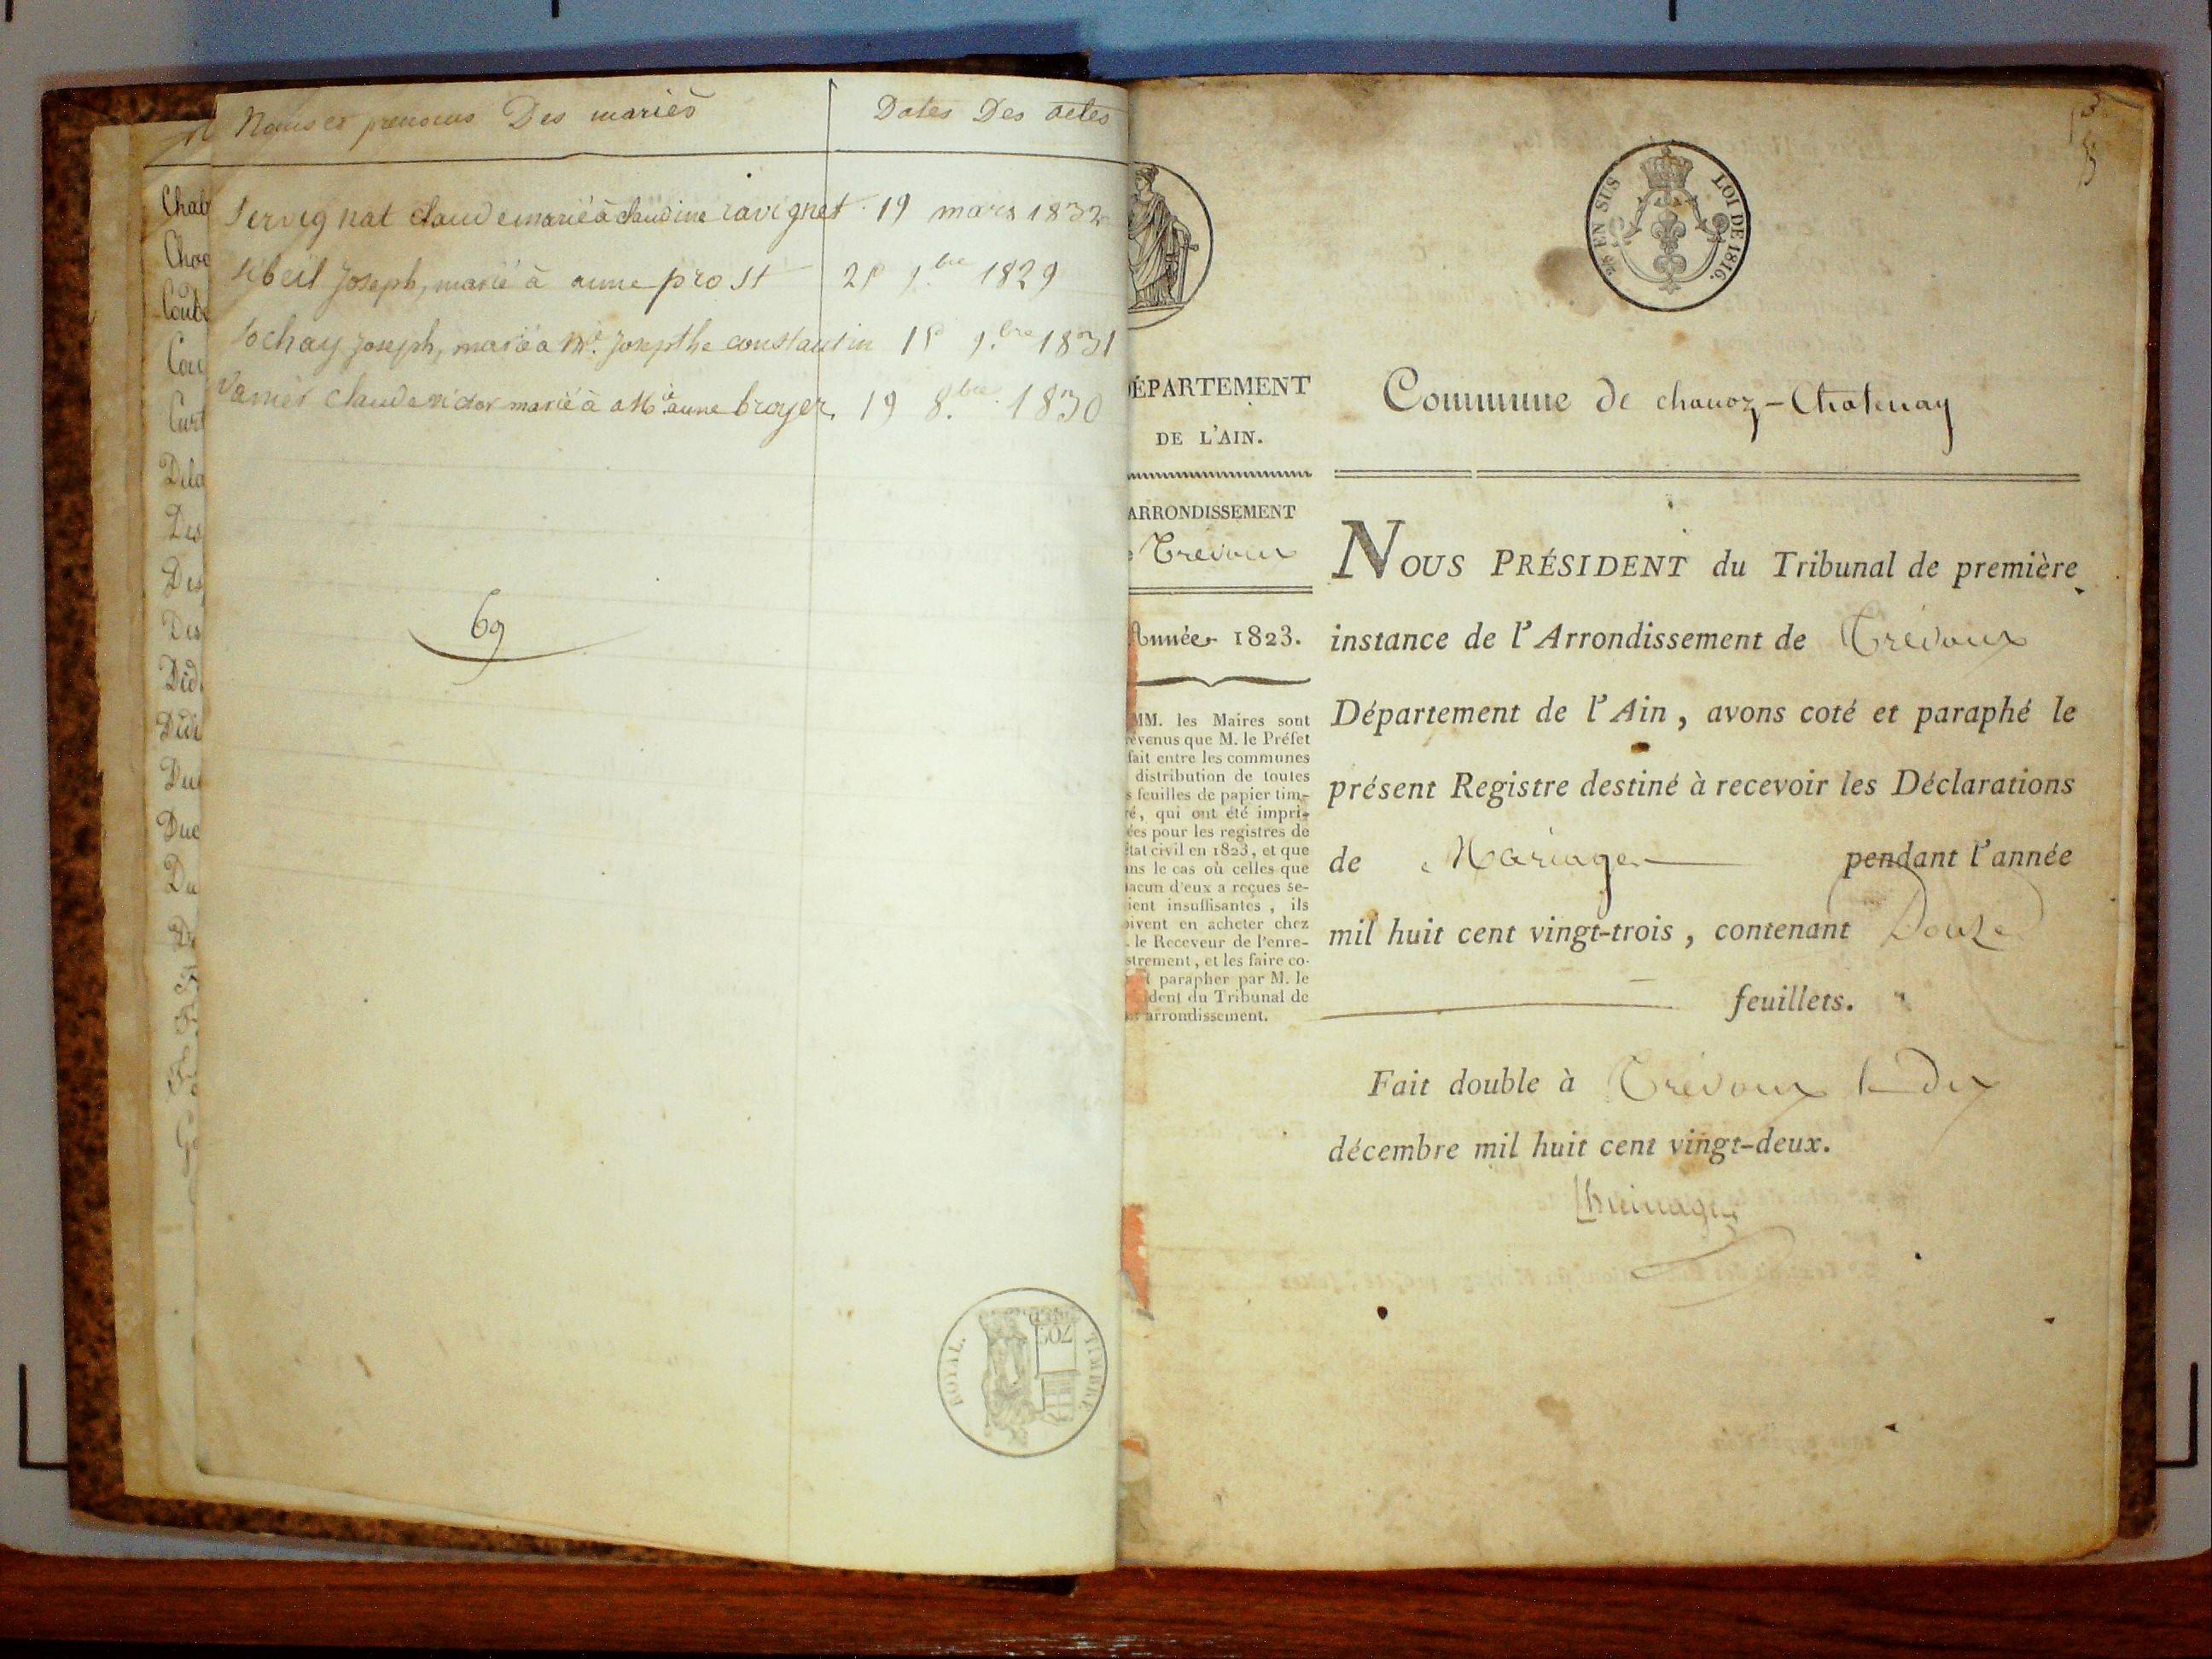 Noms et prenoms Des mariés
Dates Des actes
Servignat Claude marié à Claudine ravignet 19 mars 1832
Sibeil Joseph, marié à anne prost 1829
Tochay Joseph, marié a Mie. Josepthe constantin 1831
Vernier Claude victor marié à Mie anne broyer, 19 8.bre 1830
69
ROYAL.
TIMBRE
Chab
Choc
Coube
Cou
Curt
Dela
Des
Des
Des
Did
Didi
Duc
Du
25 EN SUS
LOI DE 1816.
DÉPARTEMENT
DE L'AIN.
ARRONDISSEMENT
Trévoux
Année 1823.
MM. les Maires sont
evenus que M. le Préfet
fait entre les communes
distribution de toutes
s feuilles de papier tim-
ré, qui ont été impri-
ées pour les registres de
état civil en 1823, et que
ans le cas où celles que
hacun d'eux a reçues se-
ient insuffisantes, ils
oivent en acheter chez
. le Receveur de l'enre-
strement, et les faire co-
parapher par M. le
dent du Tribunal de
arrondissement.
Commune de chanoz-Chatenay
NOUS PRÉSIDENT du Tribunal de première
instance de l'Arrondissement de Trévoux
Département de l'Ain, avons coté et paraphé le
présent Registre destiné à recevoir les Déclarations
de Mariages pendant l'année
mil huit cent vingt-trois, contenant Douze
feuillets.
Fait double à Trévoux le dix
décembre mil huit cent vingt-deux.